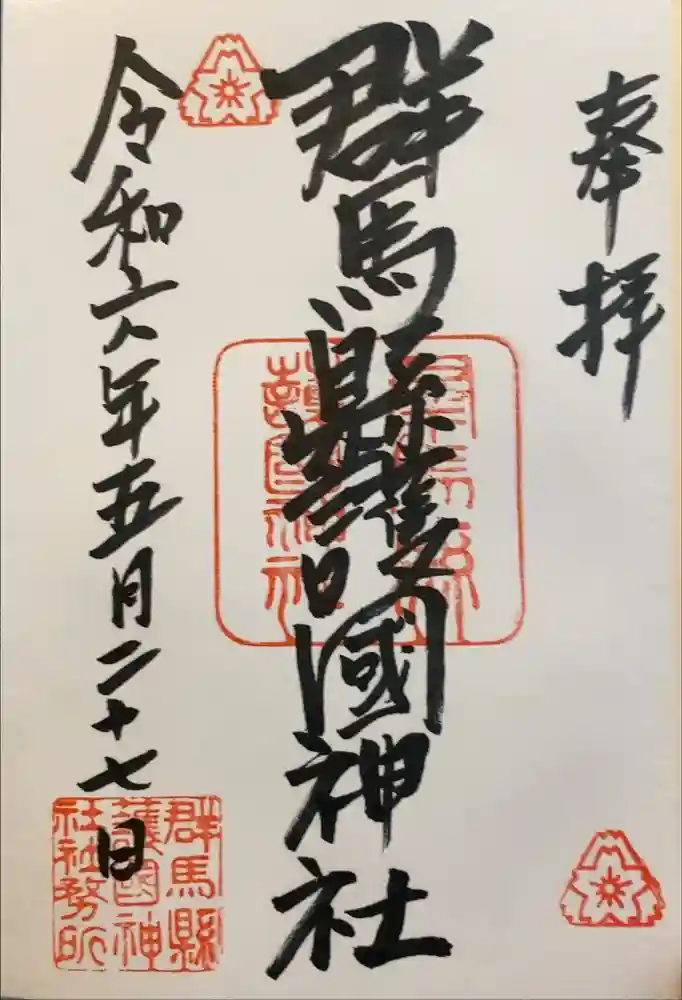 奉拝
群馬縣護國神社
令和六年五月二十七日
群馬縣
護國神
社社務所
群馬縣
護國神社